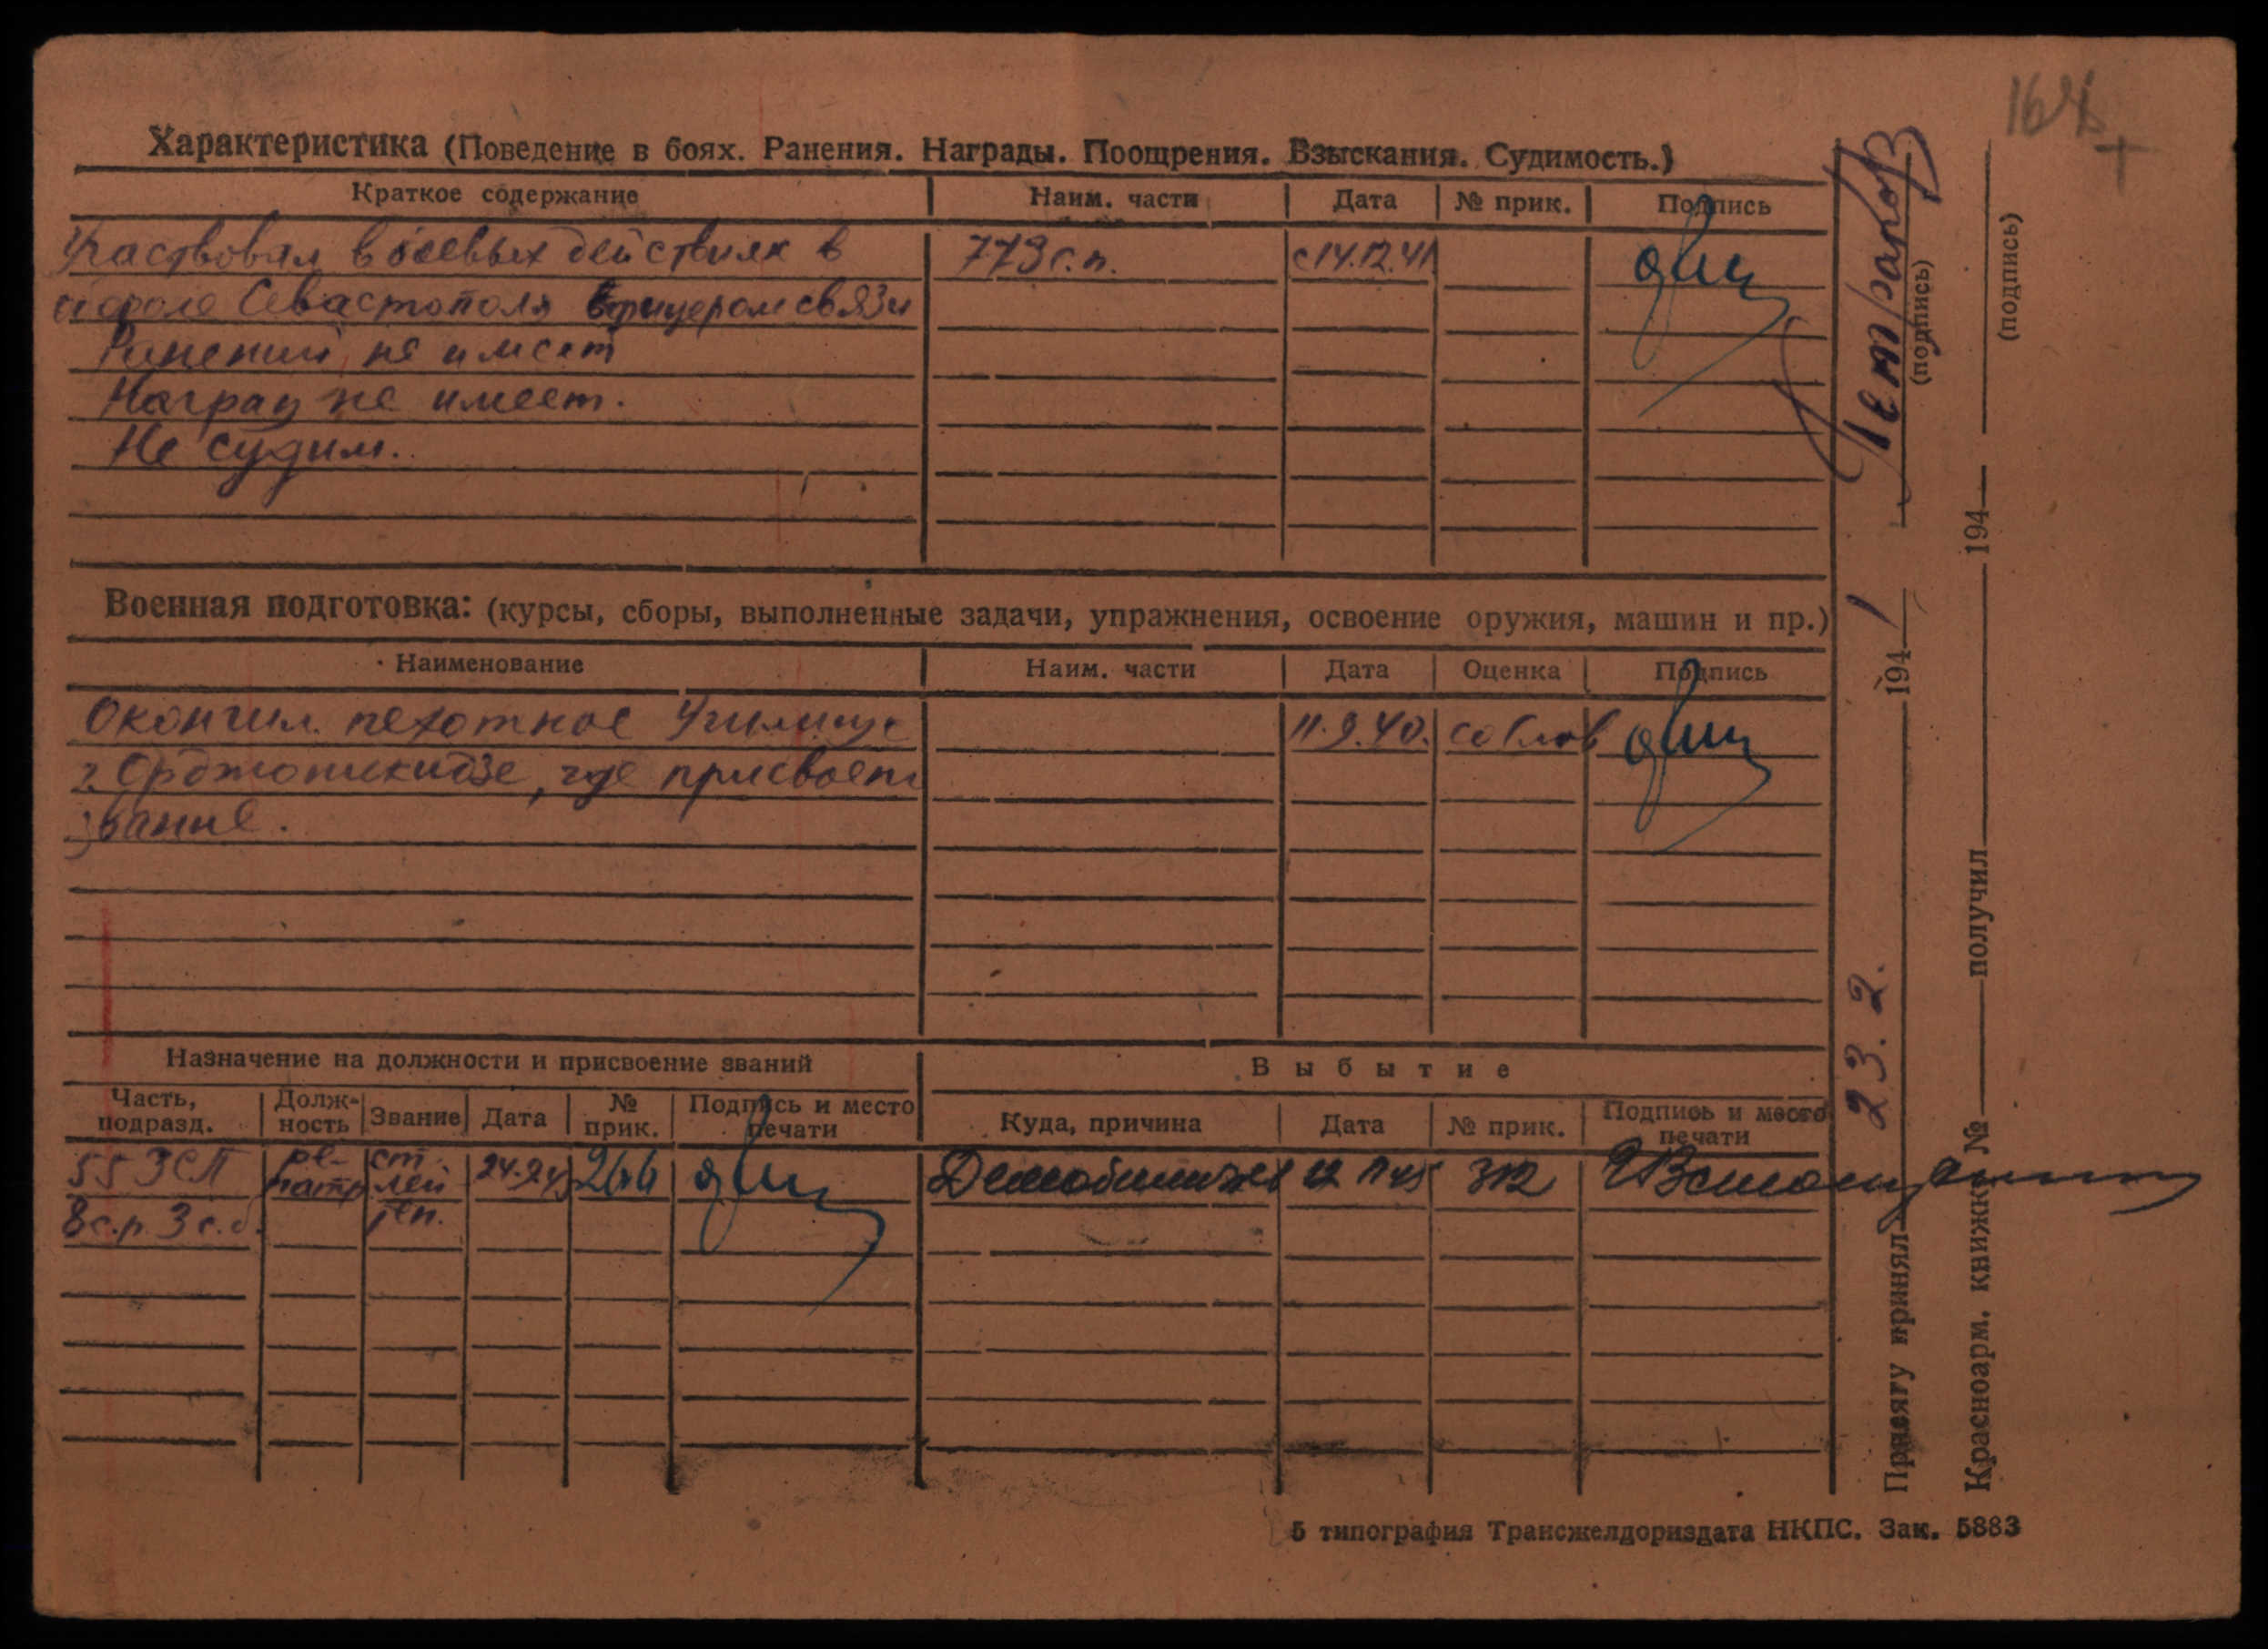 Характеристика (Поведение в боях. Ранения. Награды. Поощрения. Взыскания. Судимость.)
Краткое содержание Наим. части Дата № прик. Подпись
Участвовал в боевых действиях в 779 с.п. с 14.12.41
обороне Севастополя офицером связи
Ранений не имеет
Наград не имеет.
Не судим.
Военная подготовка: (курсы, сборы, выполненные задачи, упражнения, освоение оружия, машин и пр.)
Наименование Наим. части Дата Оценка Подпись
Окончил пехотное Училище 11.9.40.
г. Орджоникидзе, где присвоено
звание.
Назначение на должности и присвоение званий Выбытие
Часть, подразд. Долж-ность Звание Дата № прик. Подпись и место печати Куда, причина Дата № прик. Подпись и место печати
55 ЗСП ст. 266 312
8 с.р. 3 с.б.
Присягу принял 23. 2. 1941
(подпись)
Красноарм. книжку № получил 194
(подпись)
5 типография Трансжелдориздата НКПС. Зак. 5883